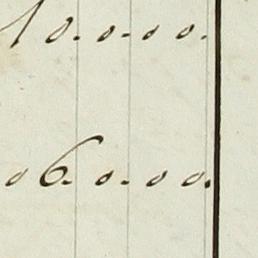 10.0.00.
06.0.00.